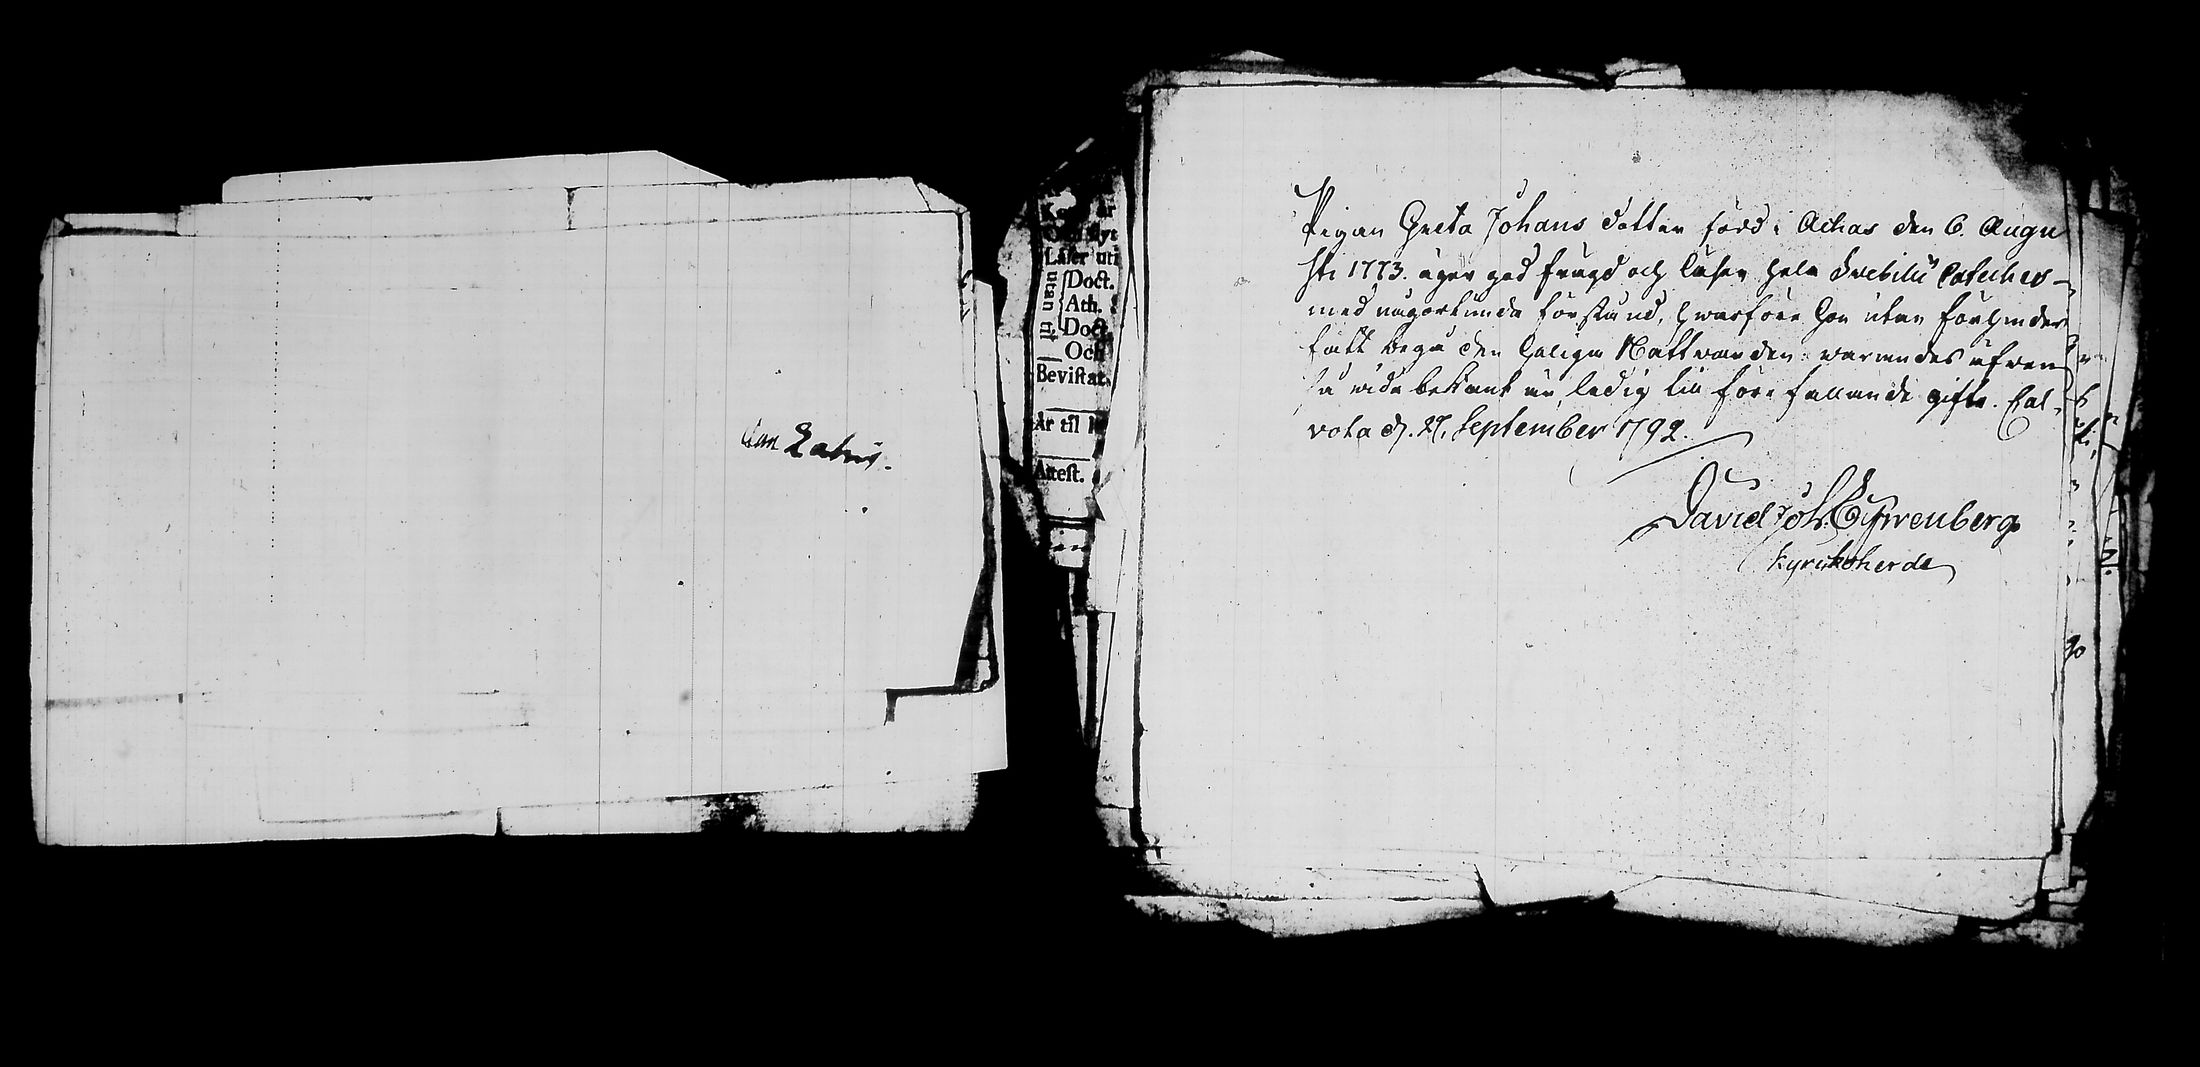 Läser uti
utan til
Doct.
Ath.
Doct.
Och
Bevistat
Är til
Attest.
Pigan Greta Johans dotter född i Achas den 6. Augu
sti 1773. äger god frägd och läser hela Svebilii Cateches
med någorlunda förstånd, hwarföre hon utan förhinder
fått begå den heliga Nattvarden: warandes äfven
så vida bekant är, ledig till förefallande gifte. Cal-
vola d. 27. September 1792.
David Joh. Ehrenberg
kyrckoherde